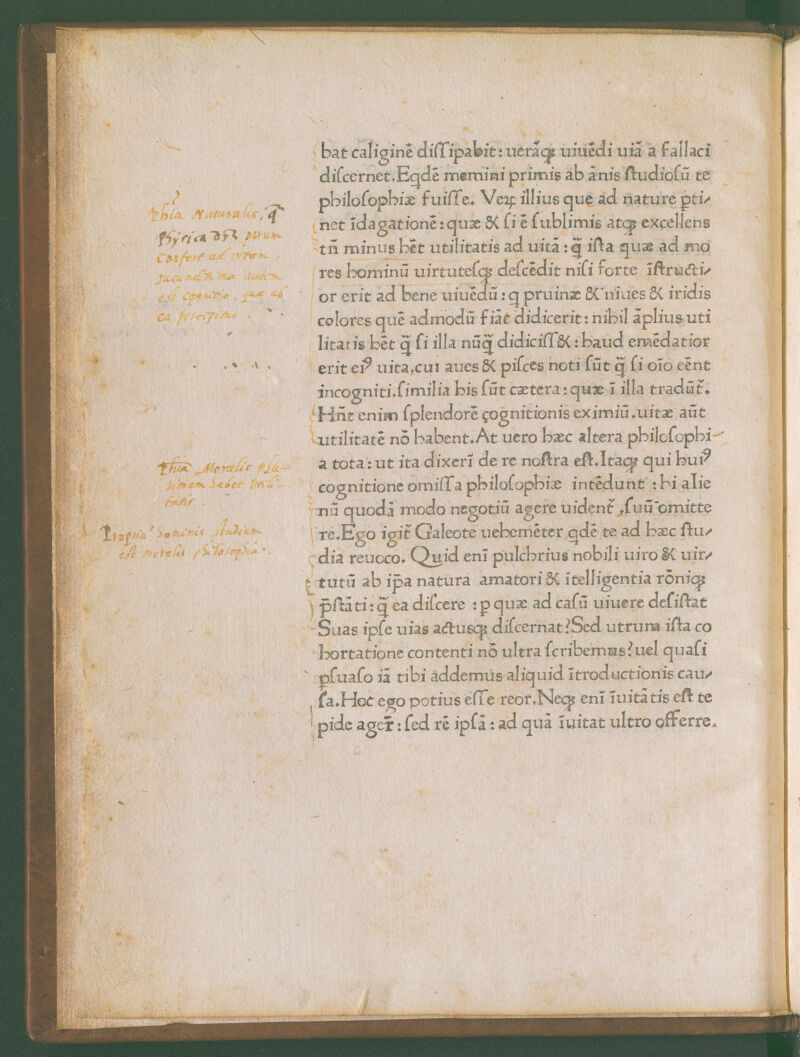 bat caliginē diſſipabit: uerāq; uiuēdi uiā a fallaci
diſcernet. Eqdē memini primis ab ānis ſtudioſū te
philoſophiæ fuiſſe. Veꝝ illius que ad nature pti-
net īdagationē: quæ & ſi ē ſublimis atq; excellens
tn̄ minus hēt utilitatis ad uitā: q̄ iſta quæ ad mo
res hominū uirtuteſq; deſcēdit niſi forte īſtructi-
or erit ad bene uiuēdū: q pruinæ & niues & iridis
colores quē admodū fiāt didicerit: nihil āplius uti
litatis hēt q̄ ſi illa nūq̄ didiciſſ&: haud emēdatior
erit eiꝰ uita, cui aues & piſces noti ſūt q̄ ſi oīo eēnt
incogniti. ſimilia his ſūt cætera: quæ ī illa tradūt̄.
Hn̄t enim ſplendorē cognitionis eximiū. uitæ aūt
utilitatē nō habent. At uero hæc altera philoſophi-
a tota: ut ita dixerī de re noſtra eſt. Itaq; qui huiꝰ
cognitione omiſſa philoſophiæ intēdunt: hi alie
nū quodā modo negotiū agere uident̄, ſuū omitte
re. Ego igit̄ Galeote uehemēter qdē te ad hæc ſtu-
dia reuoco. Quid enī pulchrius nobili uiro & uir-
tutū ab ip̄a natura amatori & ītelligentia rōniq;
p̄ſtāti: q̄ ea diſcere: p quæ ad caſū uiuere deſiſtat
Suas ipſe uias actusq; diſcernat? Sed utrum iſta co
hortatione contenti nō ultra ſcribemus? uel quaſi
pſuaſo iā tibi addemus aliquid ītroductionis cau-
ſa. Hoc ego potius eſſe reor. Neq; enī īuitātis eſt te
pide ager̄: ſed rē ipſā: ad quā īuitat ultro offerre.
Phīa Naturalis, q̄
phyſica dr̄
Phīa Moralis
Propriū hominis ſtudium
eſt moralis philoſophia.